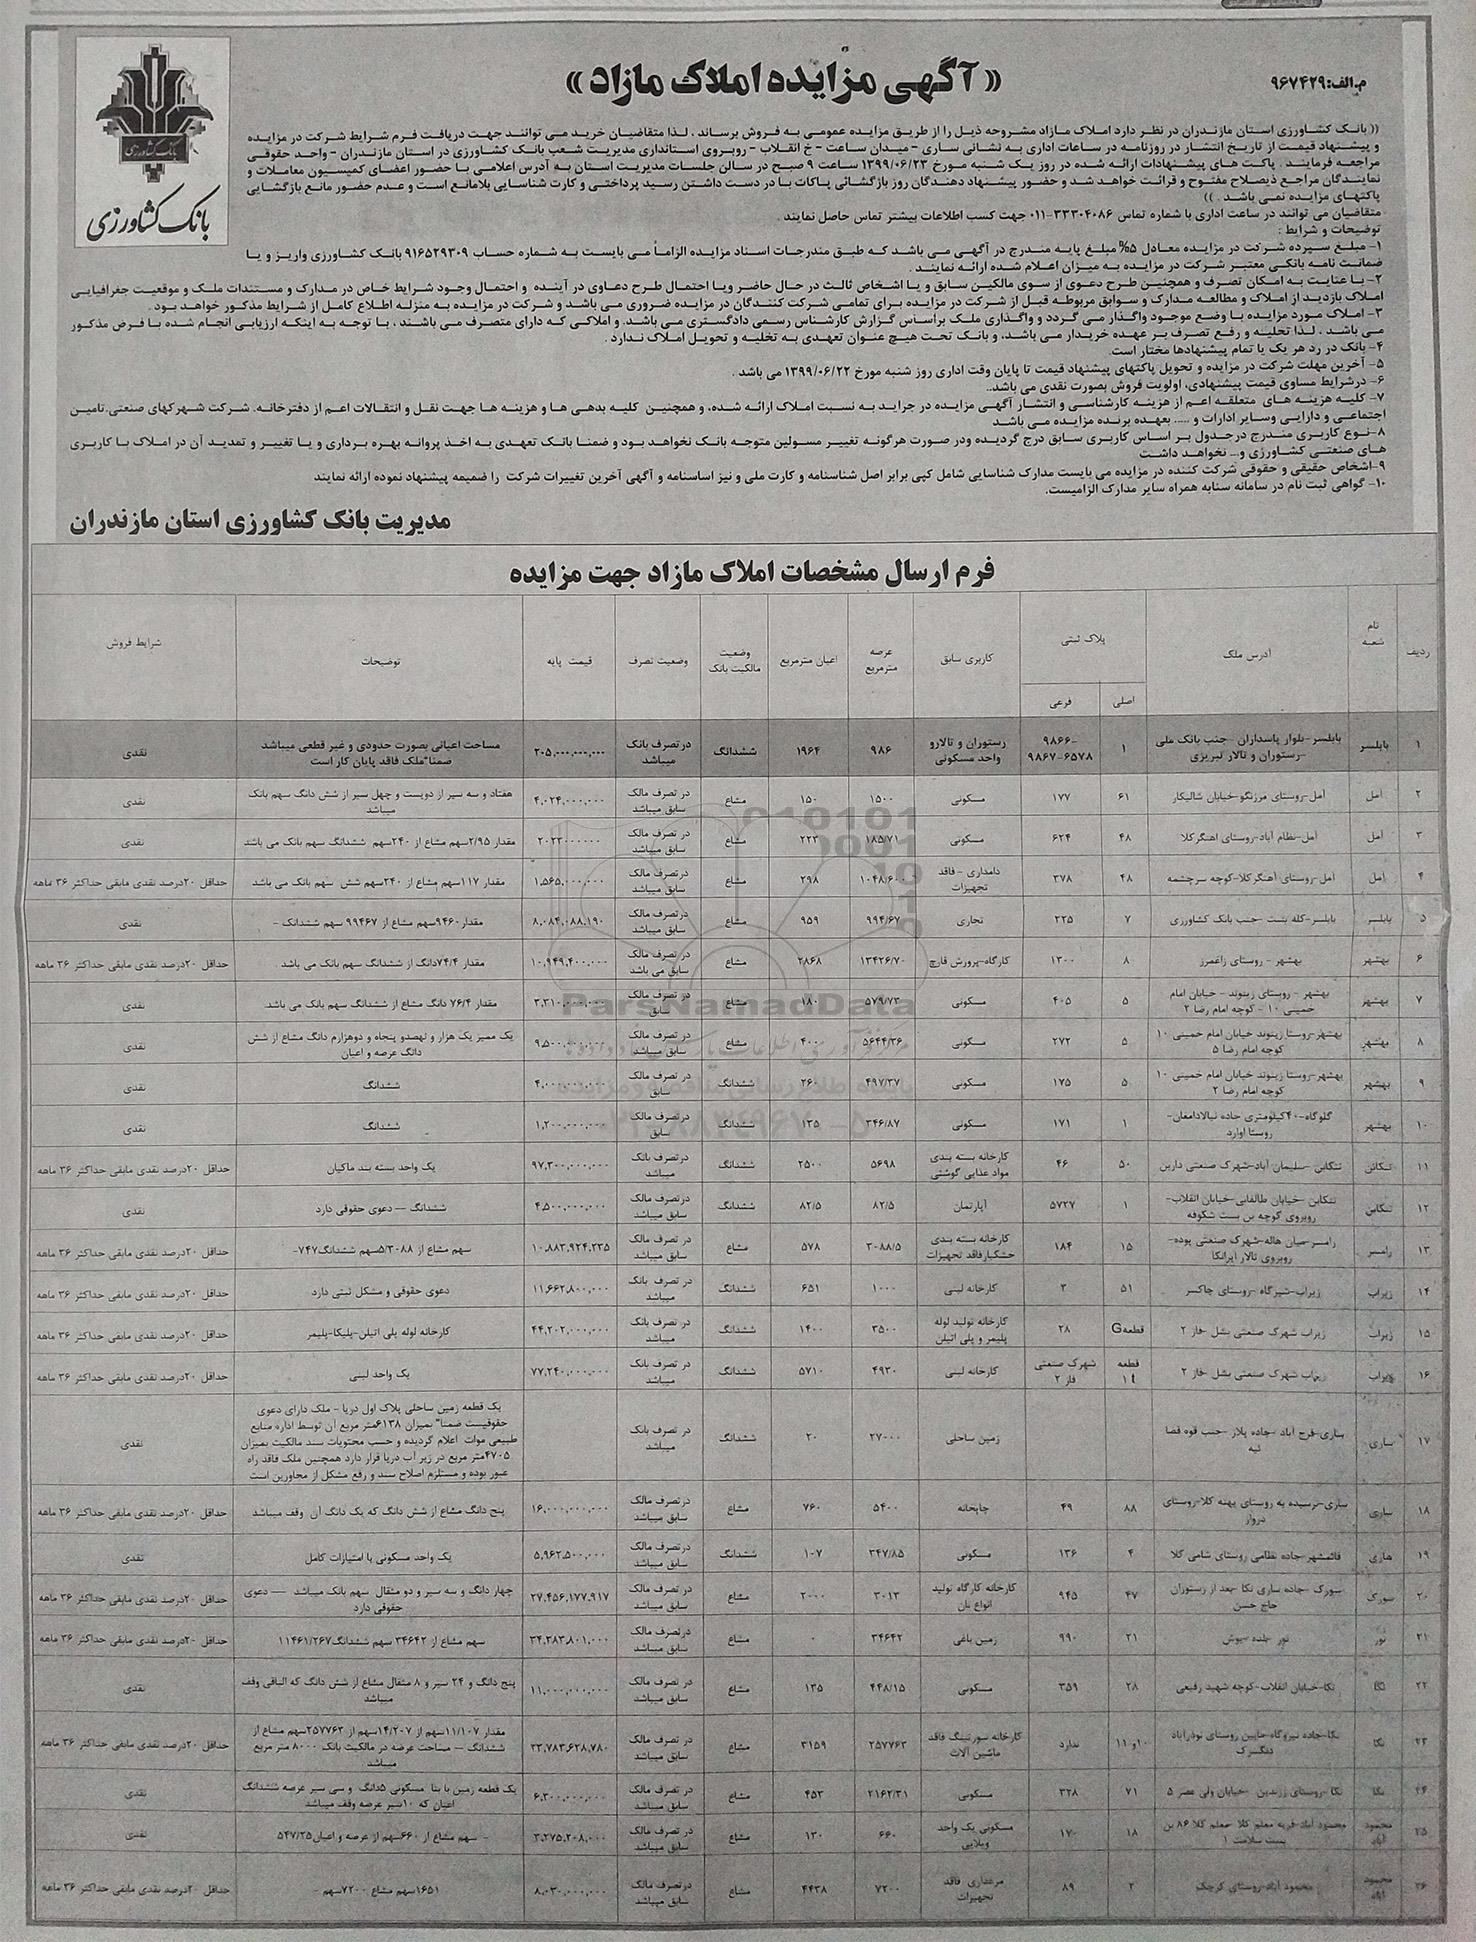 م.الف:۹۶۷۴۲۹
« آگهی مزایده املاک مازاد »
بانک کشاورزی
بانک کشاورزی
(( بانک کشاورزی استان مازندران در نظر دارد املاک مازاد مشروحه ذیل را از طریق مزایده عمومی به فروش برساند ، لذا متقاضیان خرید می توانند جهت دریافت فرم شرایط شرکت در مزایده
و پیشنهاد قیمت از تاریخ انتشار در روزنامه در ساعات اداری به نشانی ساری – میدان ساعت – خ انقلاب – روبروی استانداری مدیریت شعب بانک کشاورزی در استان مازندران – واحد حقوقی
مراجعه فرمایند . پاکت های پیشنهادات ارائه شده در روز یک شنبه مورخ ۱۳۹۹/۰۶/۲۳ ساعت ۹ صبح در سالن جلسات مدیریت استان به آدرس اعلامی با حضور اعضای کمیسیون معاملات و
نمایندگان مراجع ذیصلاح مفتوح و قرائت خواهد شد و حضور پیشنهاد دهندگان روز بازگشائی پاکات با در دست داشتن رسید پرداختی و کارت شناسایی بلامانع است و عدم حضور مانع بازگشایی
پاکتهای مزایده نمی باشد . ))
متقاضیان می توانند در ساعت اداری با شماره تماس ۳۳۳۰۴۰۸۶-۰۱۱ جهت کسب اطلاعات بیشتر تماس حاصل نمایند .
توضیحات و شرایط :
۱- مبلغ سپرده شرکت در مزایده معادل ۵% مبلغ پایه مندرج در آگهی می باشد که طبق مندرجات اسناد مزایده الزاماً می بایست به شماره حساب ۹۱۶۵۲۹۳۰۹ بانک کشاورزی واریز و یا
ضمانت نامه بانکی معتبر شرکت در مزایده به میزان اعلام شده ارائه نمایند .
۲- با عنایت به امکان تصرف و همچنین طرح دعوی از سوی مالکین سابق و یا اشخاص ثالث در حال حاضر ویا احتمال طرح دعاوی در آینده و احتمال وجود شرایط خاص در مدارک و مستندات ملک و موقعیت جغرافیایی
املاک بازدید از املاک و مطالعه مدارک و سوابق مربوطه قبل از شرکت در مزایده برای تمامی شرکت کنندگان در مزایده ضروری می باشد و شرکت در مزایده به منزله اطلاع کامل از شرایط مذکور خواهد بود .
۳- املاک مورد مزایده با وضع موجود واگذار می گردد و واگذاری ملک براساس گزارش کارشناس رسمی دادگستری می باشد. و املاکی که دارای متصرف می باشند ، با توجه به اینکه ارزیابی انجام شده با فرض مذکور
می باشد ، لذا تخلیه و رفع تصرف بر عهده خریدار می باشد، و بانک تحت هیچ عنوان تعهدی به تخلیه و تحویل املاک ندارد .
۴- بانک در رد هر یک یا تمام پیشنهادها مختار است.
۵- آخرین مهلت شرکت در مزایده و تحویل پاکتهای پیشنهاد قیمت تا پایان وقت اداری روز شنبه مورخ ۱۳۹۹/۰۶/۲۲ می باشد .
۶- درشرایط مساوی قیمت پیشنهادی، اولویت فروش بصورت نقدی می باشد..
۷- کلیه هزینه های متعلقه اعم از هزینه کارشناسی و انتشار آگهی مزایده در جراید به نسبت املاک ارائه شده، و همچنین کلیه بدهی ها و هزینه ها جهت نقل و انتقالات اعم از دفترخانه. شرکت شهرکهای صنعتی.تامین
اجتماعی و دارایی وسایر ادارات و ..... بعهده برنده مزایده می باشد
۸-نوع کاربری مندرج درجدول بر اساس کاربری سابق درج گردیده ودر صورت هرگونه تغییر مسولین متوجه بانک نخواهد بود و ضمنا بانک تعهدی به اخذ پروانه بهره برداری و یا تغییر و تمدید آن در املاک با کاربری
های صنعتی کشاورزی و... نخواهد داشت
۹-اشخاص حقیقی و حقوقی شرکت کننده در مزایده می بایست مدارک شناسایی شامل کپی برابر اصل شناسنامه و کارت ملی و نیز اساسنامه و آگهی آخرین تغییرات شرکت را ضمیمه پیشنهاد نموده ارائه نمایند
۱۰- گواهی ثبت نام در سامانه سنابه همراه سایر مدارک الزامیست.
مدیریت بانک کشاورزی استان مازندران
فرم ارسال مشخصات املاک مازاد جهت مزایده
ردیف نام شعبه آدرس ملک پلاک ثبتی اصلی فرعی کاربری سابق عرصه مترمربع اعیان مترمربع وضعیت مالکیت بانک وضعیت تصرف قیمت پایه توضیحات شرایط فروش
۱ بابلسر بابلسر-بلوار پاسداران -جنب بانک ملی -رستوران و تالار تبریزی ۱ ۹۸۶۶-۹۸۶۷-۶۵۷۸ رستوران و تالارو واحد مسکونی ۹۸۶ ۱۹۶۴ ششدانگ در تصرف بانک میباشد ۲۰۵,۰۰۰,۰۰۰,۰۰۰ مساحت اعیانی بصورت حدودی و غیر قطعی میباشد ضمنا"ملک فاقد پایان کار است نقدی
۲ آمل آمل-روستای مرزنگو-خیابان شالیکار ۶۱ ۱۷۷ مسکونی ۱۵۰۰ ۱۵۰ مشاع در تصرف مالک سابق میباشد ۴,۰۲۴,۰۰۰,۰۰۰ هفتاد و سه سیر از دویست و چهل سیر از شش دانگ سهم بانک میباشد نقدی
۳ آمل آمل-نظام آباد-روستای اهنگرکلا ۴۸ ۶۲۴ مسکونی ۱۸۵/۷۱ ۲۲۳ مشاع در تصرف مالک سابق میباشد ۲۰۲۳۰۰۰۰۰۰ مقدار ۲/۹۵سهم مشاع از ۲۴۰سهم ششدانگ سهم بانک می باشد نقدی
۴ آمل آمل-روستای آهنگرکلا-کوچه سرچشمه ۴۸ ۳۷۸ دامداری -فاقد تجهیزات ۱۰۴۸/۶۰ ۲۹۸ مشاع درتصرف مالک سابق میباشد ۱,۵۶۵,۰۰۰,۰۰۰ مقدار ۱۱۷سهم مشاع از ۲۴۰سهم شش سهم بانک می باشد حداقل ۲۰درصد نقدی مابقی حداکثر ۳۶ ماهه
۵ بابلسر بابلسر-کله بست -جنب بانک کشاورزی ۷ ۲۲۵ تجاری ۹۹۴/۶۷ ۹۵۹ مشاع در تصرف مالک سابق میباشد ۸,۰۸۴,۰۸۸,۱۹۰ مقدار۹۴۶۰سهم مشاع از ۹۹۴۶۷ سهم ششدانگ - نقدی
۶ بهشهر بهشهر - روستای زاغمرز ۸ ۱۳۰۰ کارگاه-پرورش قارچ ۱۳۴۲۶/۷۰ ۲۸۶۸ مشاع در تصرف مالک سابق می باشد ۱۰,۹۴۹,۴۰۰,۰۰۰ مقدار ۷۴/۴دانگ از ششدانگ سهم بانک می باشد حداقل ۲۰درصد نقدی مابقی حداکثر ۳۶ ماهه
۷ بهشهر بهشهر - روستای زینوند - خیابان امام خمینی ۱۰ - کوچه امام رضا ۲ ۵ ۴۰۵ مسکونی ۵۷۹/۷۳ ۱۸۰ مشاع در تصرف مالک سابق ۳,۳۱۰,۰۰۰,۰۰۰ مقدار ۷۶/۴ دانگ مشاع از ششدانگ سهم بانک می باشد. نقدی
۸ بهشهر بهشهر-روستا زینوند خیابان امام خمینی ۱۰ کوچه امام رضا ۵ ۵ ۲۷۲ مسکونی ۵۶۴۴/۳۶ ۴۰۰ مشاع در تصرف مالک سابق میباشد ۹,۵۰۰,۰۰۰,۰۰۰ یک ممیز یک هزار و نهصدو پنجاه و دوهزارم دانگ مشاع از شش دانگ عرصه و اعیان نقدی
۹ بهشهر بهشهر-روستا زینوند خیابان امام خمینی ۱۰ کوچه امام رضا ۲ ۵ ۱۷۵ مسکونی ۴۹۷/۳۷ ۲۶۰ ششدانگ در تصرف مالک سابق ۴,۰۰۰,۰۰۰,۰۰۰ ششدانگ نقدی
۱۰ بهشهر گلوگاه-۴۰کیلومتری جاده نیالادامغان-روستا اوارد ۱ ۱۷۱ مسکونی ۳۴۶/۸۷ ۱۳۵ ششدانگ درتصرف مالک سابق ۱,۲۰۰,۰۰۰,۰۰۰ ششدانگ نقدی
۱۱ تنکابن تنکابن -سلیمان آباد-شهرک صنعتی دارین ۵۰ ۴۶ کارخانه بسته بندی مواد غذایی گوشتی ۵۶۹۸ ۲۵۰۰ ششدانگ درتصرف بانک میباشد ۹۷,۳۰۰,۰۰۰,۰۰۰ یک واحد بسته بند ماکیان حداقل ۲۰درصد نقدی مابقی حداکثر ۳۶ ماهه
۱۲ تنکابن تنکابن -خیابان طالقانی-خیابان انقلاب-روبروی کوچه بن بست شکوفه ۱ ۵۷۲۷ آپارتمان ۸۲/۵ ۸۲/۵ ششدانگ درتصرف مالک سابق میباشد ۴,۵۰۰,۰۰۰,۰۰۰ ششدانگ — دعوی حقوقی دارد نقدی
۱۳ رامسر رامسر-میان هاله-شهرک صنعتی پوده-روبروی تالار ایرانکا ۱۵ ۱۸۴ کارخانه بسته بندی خشکبارفاقد تجهیزات ۳۰۸۸/۵ ۵۷۸ مشاع در تصرف مالک سابق میباشد ۱۰,۸۸۳,۹۲۴,۲۳۵ سهم مشاع از ۵/۳۰۸۸سهم ششدانگ۷۴۷- حداقل ۲۰درصد نقدی مابقی حداکثر ۳۶ ماهه
۱۴ زیراب زیراب-شیرگاه -روستای چاکسر ۵۱ ۳ کارخانه لبنی ۱۰۰۰ ۶۵۱ ششدانگ در تصرف بانک میباشد ۱۱,۶۶۲,۸۰۰,۰۰۰ دعوی حقوقی و مشکل ثبتی دارد حداقل ۲۰درصد نقدی مابقی حداکثر ۳۶ ماهه
۱۵ زیراب زیراب شهرک صنعتی بشل -فاز ۲ قطعهG ۲۸ کارخانه تولید لوله پلیمر و پلی اتیلن ۳۵۰۰ ۱۴۰۰ ششدانگ در تصرف بانک میباشد ۴۴,۲۰۲,۰۰۰,۰۰۰ کارخانه لوله پلی اتیلن-پلیکا-پلیمر حداقل ۲۰درصد نقدی مابقی حداکثر ۳۶ ماهه
۱۶ زیراب زیراب شهرک صنعتی بشل -فاز ۲ قطعه ۱t شهرک صنعتی فاز ۲ کارخانه لبنی ۴۹۳۰ ۵۷۱۰ ششدانگ در تصرف بانک میباشد ۷۷,۲۴۰,۰۰۰,۰۰۰ یک واحد لبنی حداقل ۲۰درصد نقدی مابقی حداکثر ۳۶ ماهه
۱۷ ساری ساری-فرح آباد -جاده پلاژ -جنب قوه قضائیه زمین ساحلی ۲۷۰۰۰ ۲۰ ششدانگ در تصرف بانک میباشد یک قطعه زمین ساحلی پلاک اول دریا - ملک دارای دعوی حقوقیست ضمنا" بمیزان ۶۱۳۸متر مربع آن توسط اداره منابع طبیعی موات اعلام گردیده و حسب محتویات سند مالکیت بمیزان ۴۷۰۵متر مربع در زیر آب دریا قرار دارد همچنین ملک فاقد راه عبور بوده و مستلزم اصلاح سند و رفع مشکل از مجاورین است نقدی
۱۸ ساری ساری-نرسیده به روستای پهنه کلا-روستای دروار ۸۸ ۴۹ چاپخانه ۵۴۰۰ ۷۶۰ مشاع در تصرف مالک سابق میباشد ۱۶,۰۰۰,۰۰۰,۰۰۰ پنج دانگ مشاع از شش دانگ که یک دانگ آن وقف میباشد حداقل ۲۰درصد نقدی مابقی حداکثر ۳۶ ماهه
۱۹ ساری قائمشهر-جاده نظامی روستای شامی کلا ۴ ۱۳۶ مسکونی ۳۴۷/۸۵ ۱۰۷ ششدانگ در تصرف مالک سابق میباشد ۵,۹۶۲,۵۰۰,۰۰۰ یک واحد مسکونی با امتیازات کامل نقدی
۲۰ سورک سورک -جاده ساری نکا -بعد از رستوران حاج حسن ۴۷ ۹۴۵ کارخانه کارگاه تولید انواع نان ۳۰۱۳ ۲۰۰۰ مشاع در تصرف مالک سابق میباشد ۲۷,۴۵۶,۱۷۷,۹۱۷ چهار دانگ و سه سیر و دو مثقال سهم بانک میباشد — دعوی حقوقی دارد حداقل ۲۰درصد نقدی مابقی حداکثر ۳۶ ماهه
۲۱ نور نور -چلندر ۲۱ ۹۹۰ زمین باغی ۳۴۶۴۲ ۰ مشاع درتصرف مالک سابق میباشد ۳۴,۳۸۳,۸۰۱,۰۰۰ سهم مشاع از ۳۴۶۴۲ سهم ششدانگ۱۱۴۶۱/۲۶۷ حداقل ۲۰درصد نقدی مابقی حداکثر ۳۶ ماهه
۲۲ نکا نکا-خیابان انقلاب-کوچه شهید رفیعی ۲۸ ۳۵۹ مسکونی ۴۴۸/۱۵ ۱۳۵ مشاع در تصرف مالک سابق میباشد ۱۱,۰۰۰,۰۰۰,۰۰۰ پنج دانگ و ۲۴ سیر و ۸ مثقال مشاع از شش دانگ که الباقی وقف میباشد نقدی
۲۳ نکا نکا-جاده نیروگاه-مابین روستای نوذرآباد دنگسرک ۱۰و۱۱ ندارد کارخانه سورتینگ فاقد ماشین آلات ۲۵۷۷۶۳ ۳۱۵۹ مشاع در تصرف مالک سابق میباشد ۲۳,۷۸۳,۶۲۸,۷۸۰ مقدار ۱۱/۱۰۷سهم از ۱۴/۲۰۷سهم از ۲۵۷۷۶۳سهم مشاع از ششدانگ – مساحت عرصه در مالکیت بانک ۸۰۰۰ متر مربع میباشد حداقل ۲۰درصد نقدی مابقی حداکثر ۳۶ ماهه
۲۴ نکا نکا -روستای زرندین -خیابان ولی عصر ۵ ۷۱ ۳۲۸ مسکونی ۲۱۶۲/۳۱ ۴۵۳ مشاع در تصرف مالک سابق میباشد ۶,۳۰۰,۰۰۰,۰۰۰ یک قطعه زمین با بنا مسکونی ۵دانگ و سی سیر عرصه ششدانگ اعیان که ۱۰سیر عرصه وقف میباشد نقدی
۲۵ محمود آباد محمود آباد-قریه معلم کلا -معلم کلا ۸۶ بن بست سلامت ۱ ۱۸ ۱۷۰ مسکونی یک واحد ویلایی ۶۶۰ ۱۳۰ مشاع در تصرف مالک سابق میباشد ۳,۲۷۵,۲۰۸,۰۰۰ - سهم مشاع از ۶۶۰سهم از عرصه و اعیان۵۴۷/۲۵ نقدی
۲۶ محمود آباد محمود آباد-روستای کرچک ۲ ۸۹ مرغداری فاقد تجهیزات ۷۲۰۰ ۴۴۳۸ مشاع درتصرف مالک سابق میباشد ۸,۰۳۰,۰۰۰,۰۰۰ ۱۶۵۱سهم مشاع ۷۲۰۰سهم - حداقل ۲۰درصد نقدی مابقی حداکثر ۳۶ ماهه
ParsNamadData